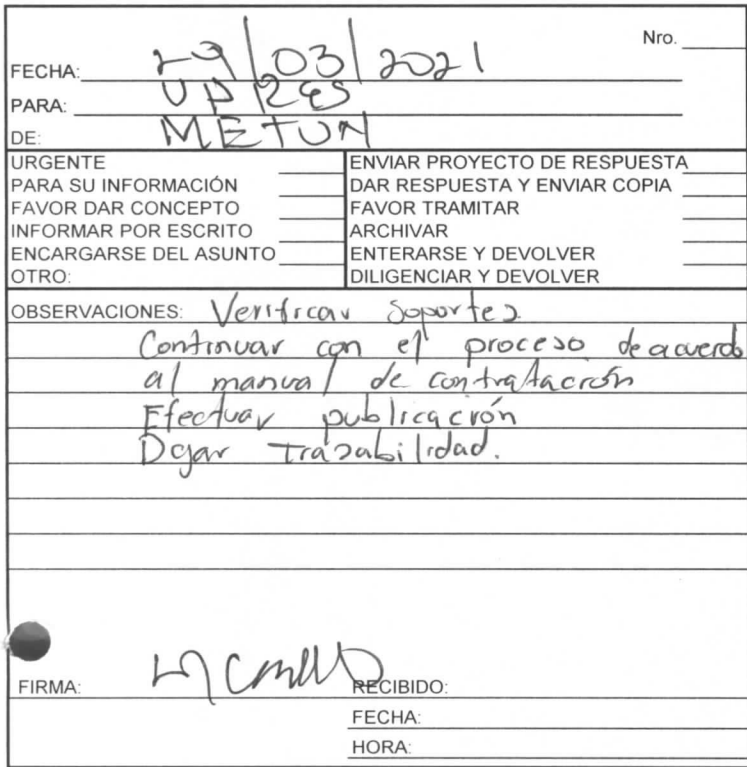 Nro.
FECHA: 29/03/2021
PARA: UP RES
DE: METUN
URGENTE
PARA SU INFORMACIÓN
FAVOR DAR CONCEPTO
INFORMAR POR ESCRITO
ENCARGARSE DEL ASUNTO
OTRO:
ENVIAR PROYECTO DE RESPUESTA
DAR RESPUESTA Y ENVIAR COPIA
FAVOR TRAMITAR
ARCHIVAR
ENTERARSE Y DEVOLVER
DILIGENCIAR Y DEVOLVER
OBSERVACIONES: Verificar Soportes.
Continuar con el proceso de acuerdo
al manual de contratación
Efectuar publicación
Dejar trazabilidad.
FIRMA:
RECIBIDO:
FECHA:
HORA: